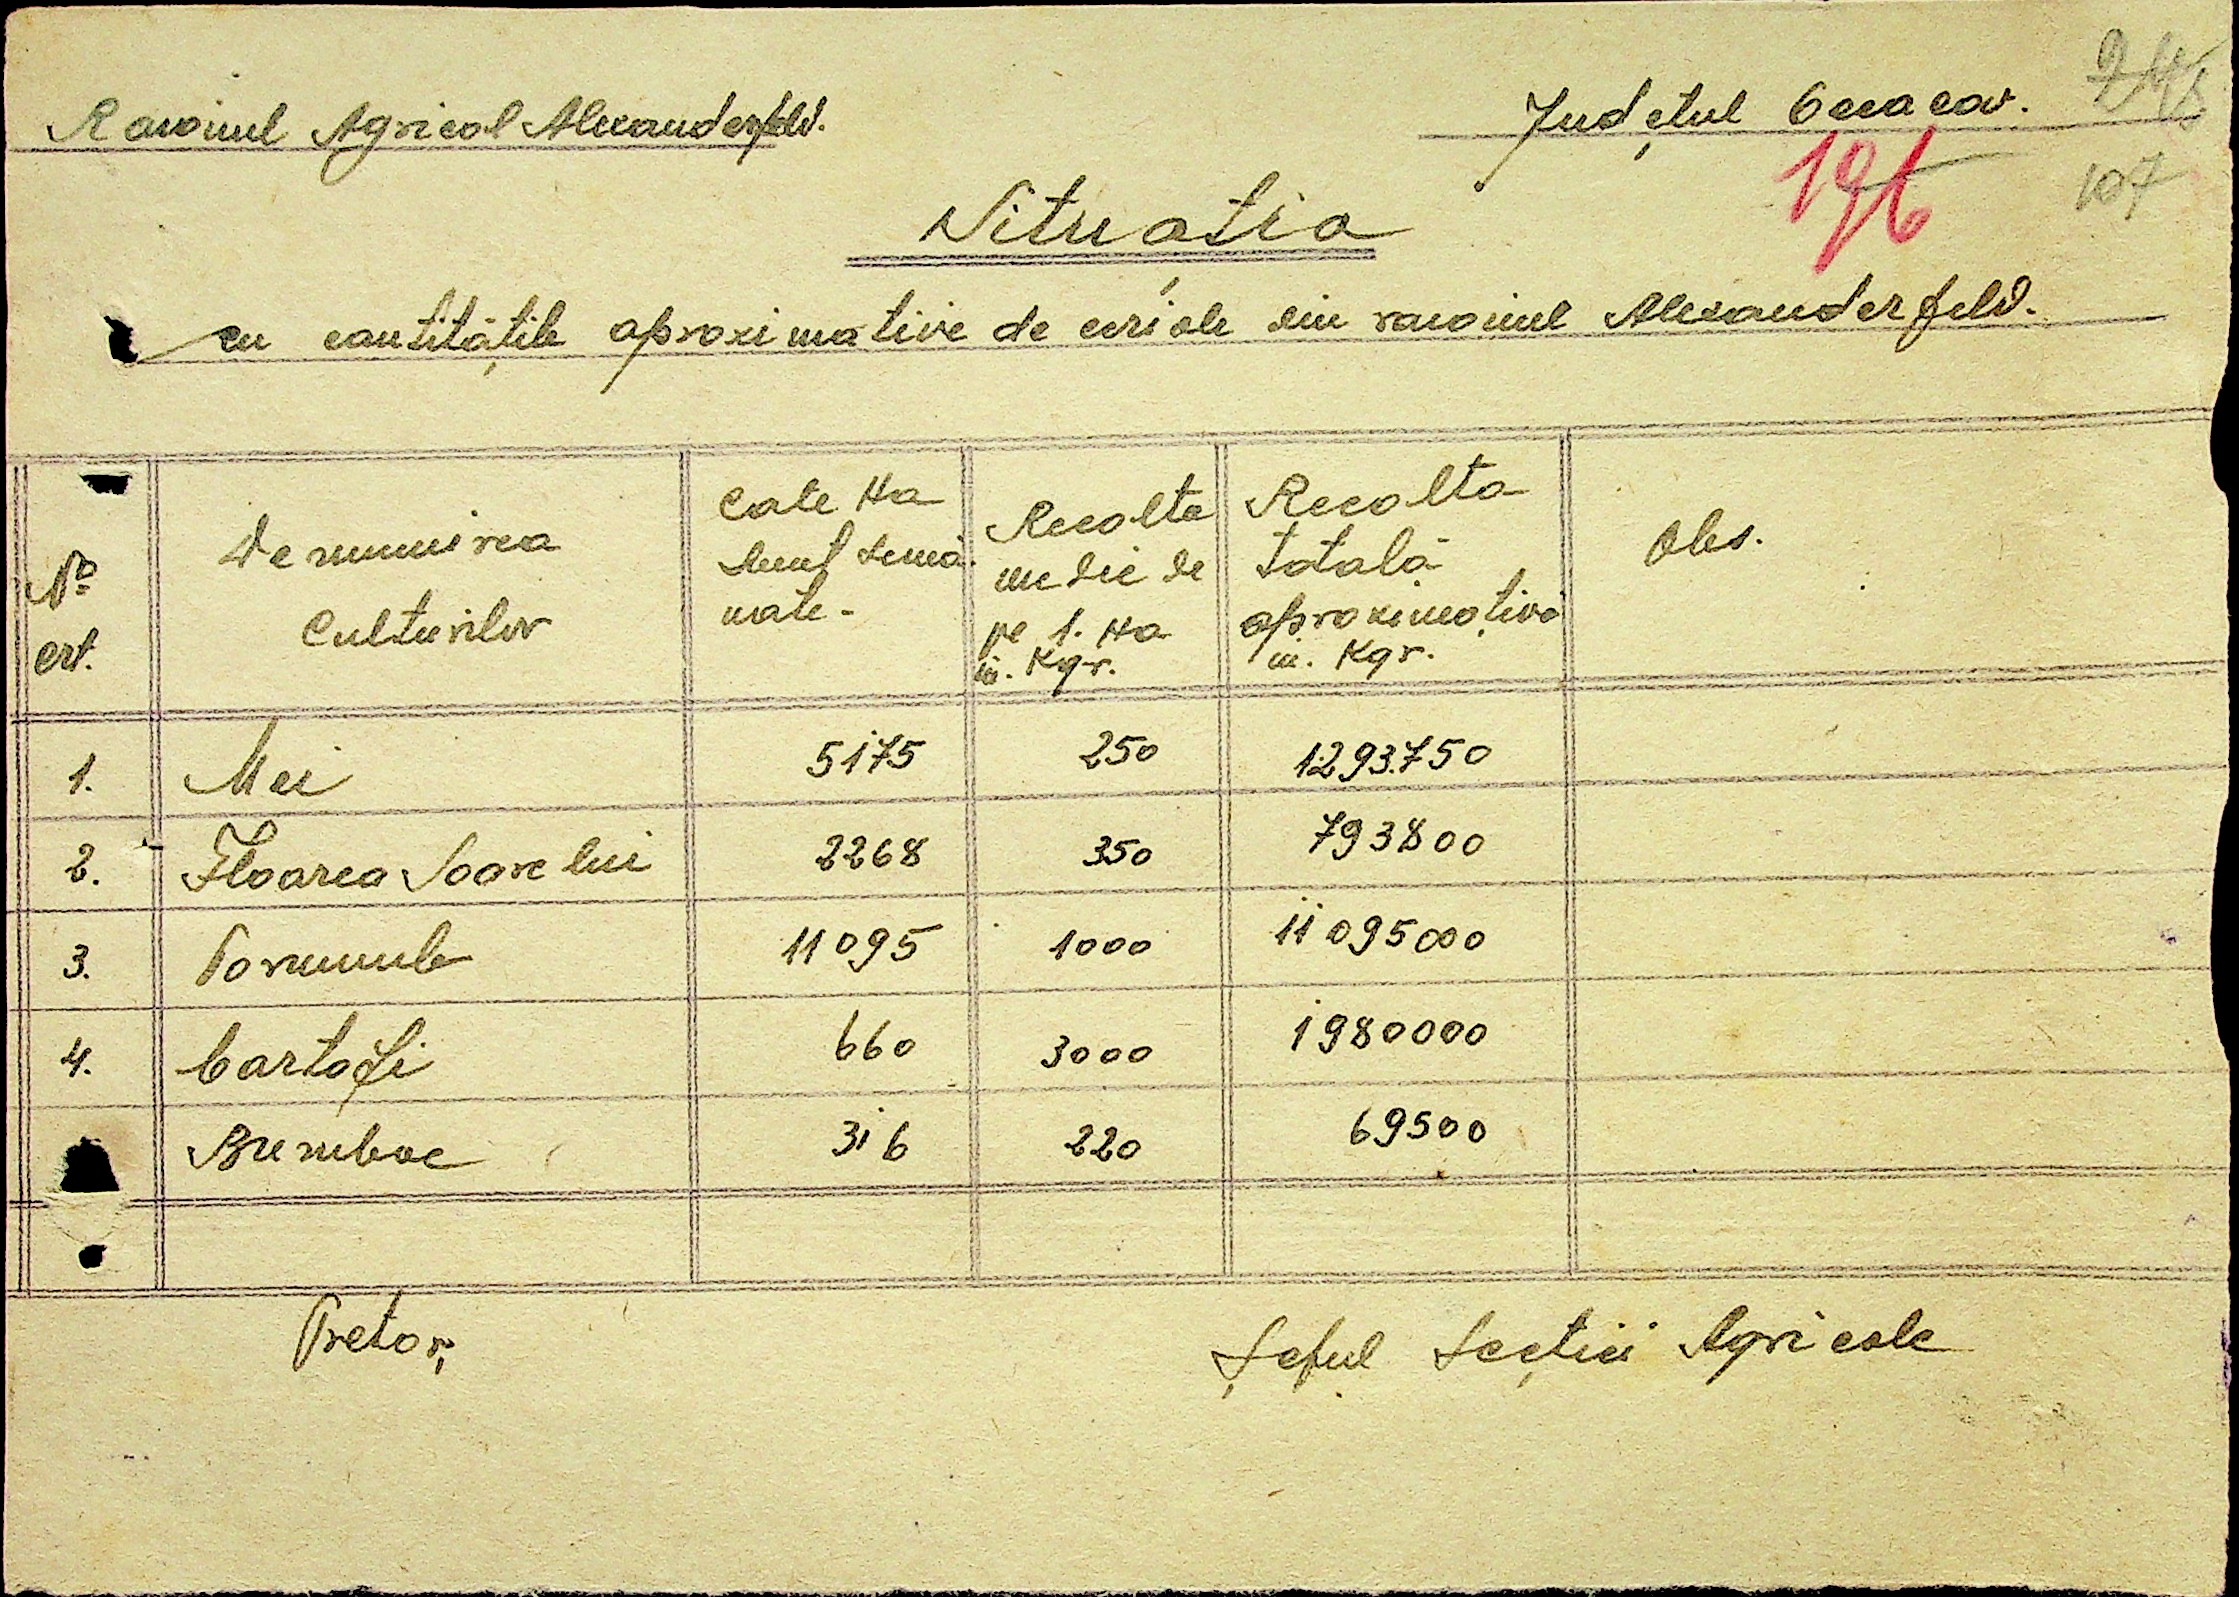 Raionul Agricol Alexanderfeld.
Județul Oceacov.
196
107
Situația
cu cantitățile aproximative de ceriale din raionul Alexanderfeld.
No crt. Denumirea Culturilor Cate Ha sunt semă- nate- Recolta medie de pe 1. Ha în. Kgr. Recolta totală aproximativă în. Kgr. Obs.
1. Mei 5175 250 1.293.750
2. Floarea Soarelui 2268 350 793800
3. Porumb 11095 1000 11095000
4. Cartofi 660 3000 1980000
Bumbac 316 220 69500
Pretor, Șeful Secției Agricole